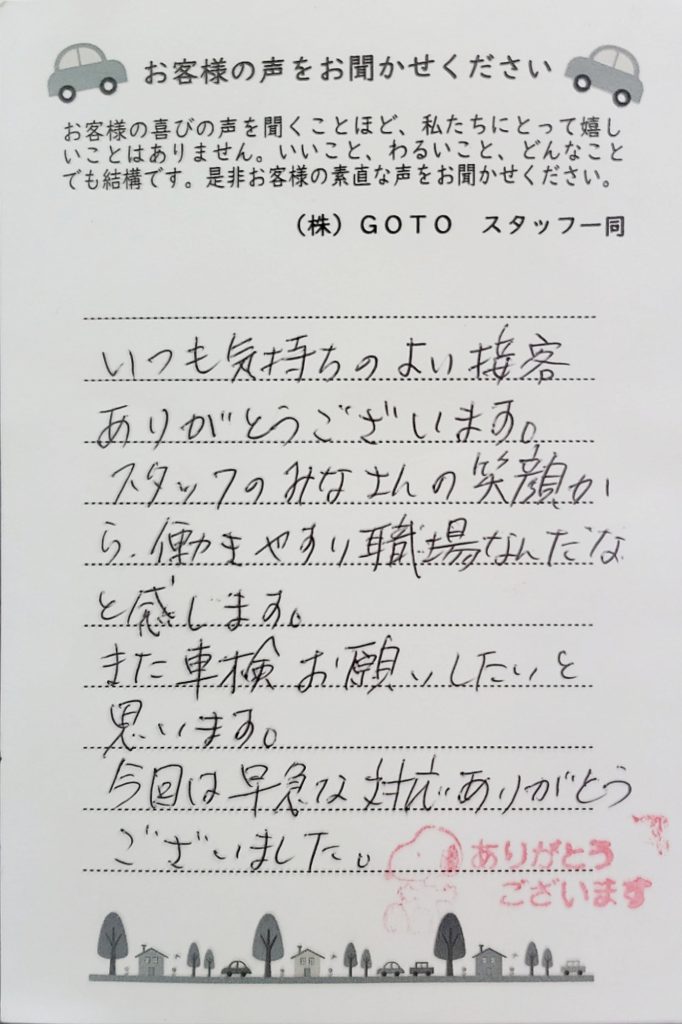 お客様の声をお聞かせください
お客様の喜びの声を聞くことほど、私たちにとって嬉し
いことはありません。いいこと、わるいこと、どんなこと
でも結構です。是非お客様の素直な声をお聞かせください。
(株)GOTO スタッフ一同
いつも気持ちのよい接客
ありがとうございます。
スタッフのみなさんの笑顔か
ら、働きやすい職場なんだな
と感じます。
また車検お願いしたいと
思います。
今回は早急な対応ありがとう
ございました。
ありがとう
ございます